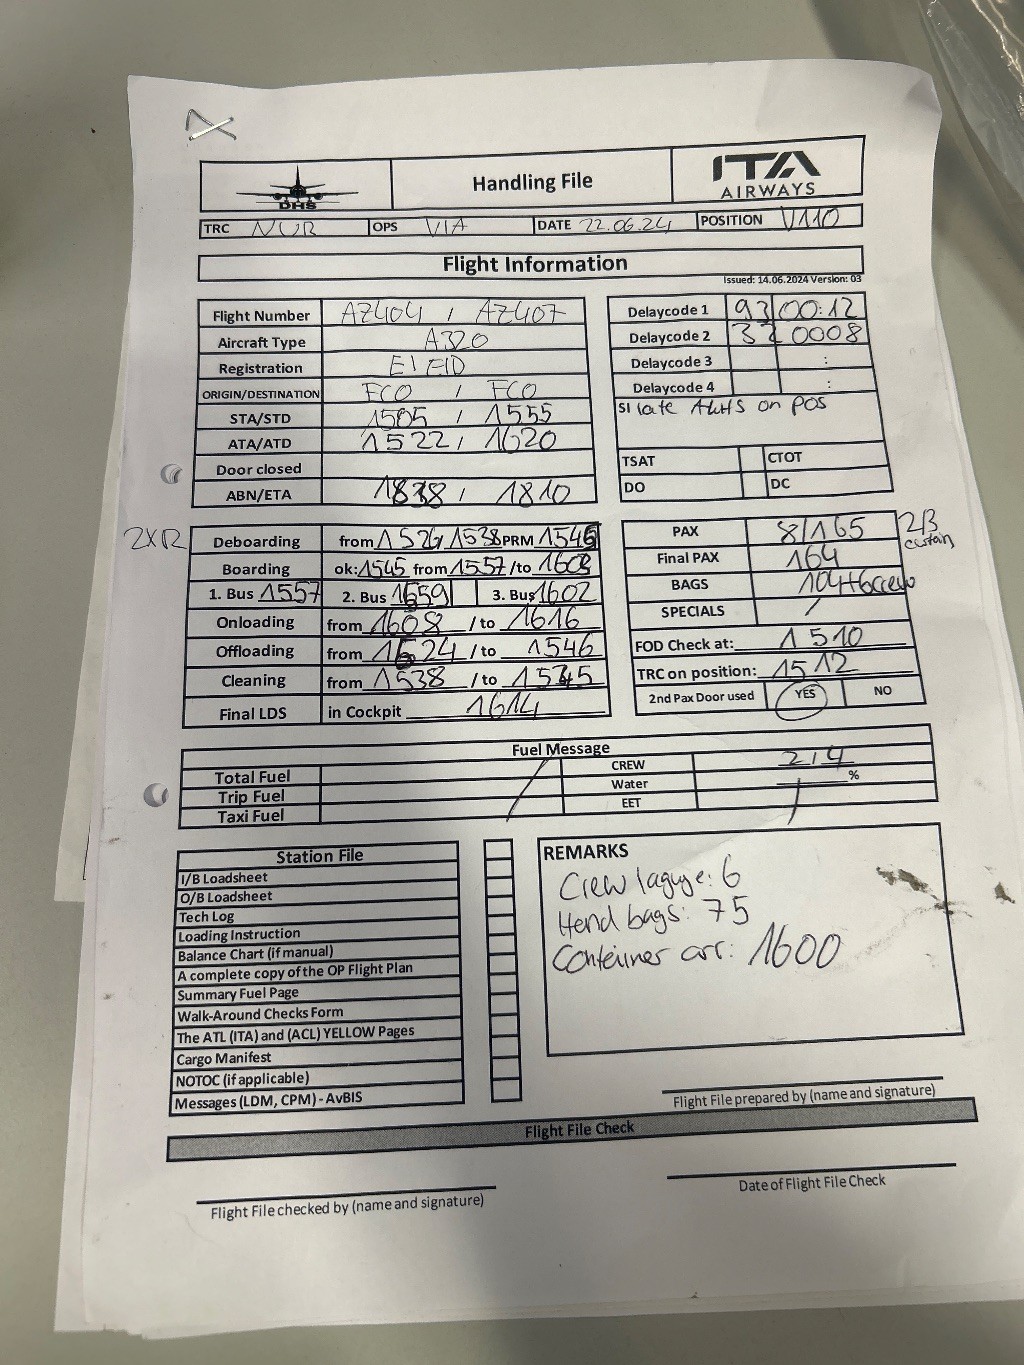 DHS
Handling File
ITA
AIRWAYS
TRC NUR OPS VIA DATE 22.06.24 POSITION V110
Flight Information
Issued: 14.06.2024 Version: 03
Flight Number AZ404 / AZ407
Aircraft Type A320
Registration EI EID
ORIGIN/DESTINATION FCO / FCO
STA/STD 1505 / 1555
ATA/ATD 1522 / 1620
Door closed
ABN/ETA / 1810
Delaycode 1 93 00:12
Delaycode 2 0008
Delaycode 3 :
Delaycode 4 :
SI late on pos
TSAT CTOT
DO DC
2XR
Deboarding from 1526 / 1538 PRM 1546
Boarding ok: 1545 from 1557 /to
1. Bus 1557 2. Bus 1559 3. Bus 1602
Onloading from 1608 / to 1616
Offloading from / to 1546
Cleaning from 1538 / to
Final LDS in Cockpit 1614
PAX 8/165 2/3
Final PAX 164
BAGS 104+6crew
SPECIALS /
FOD Check at: 1510
TRC on position: 1512
2nd Pax Door used YES NO
Fuel Message
Total Fuel CREW 2/4
Trip Fuel Water %
Taxi Fuel EET
Station File
I/B Loadsheet
O/B Loadsheet
Tech Log
Loading Instruction
Balance Chart (if manual)
A complete copy of the OP Flight Plan
Summary Fuel Page
Walk-Around Checks Form
The ATL (ITA) and (ACL) YELLOW Pages
Cargo Manifest
NOTOC (if applicable)
Messages (LDM, CPM) - AvBIS
REMARKS
Crew laguge: 6
Hend bags: 75
Conteiner arr: 1600
Flight File prepared by (name and signature)
Flight File Check
Flight File checked by (name and signature)
Date of Flight File Check